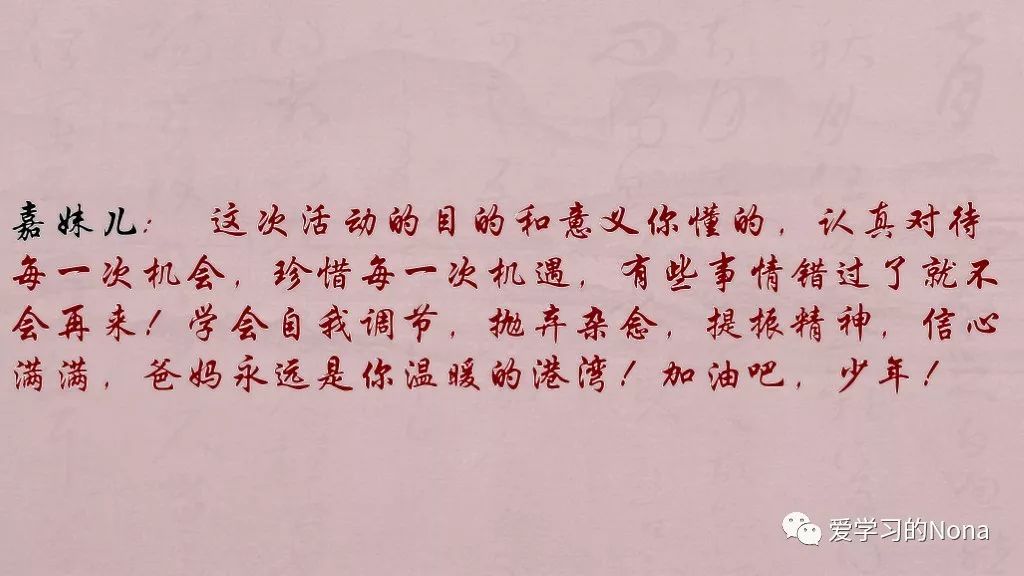 嘉妹儿： 这次活动的目的和意义你懂的，认真对待
每一次机会，珍惜每一次机遇，有些事情错过了就不
会再来！学会自我调节，抛弃杂念，提振精神，信心
满满，爸妈永远是你温暖的港湾！加油吧，少年！
爱学习的Nona